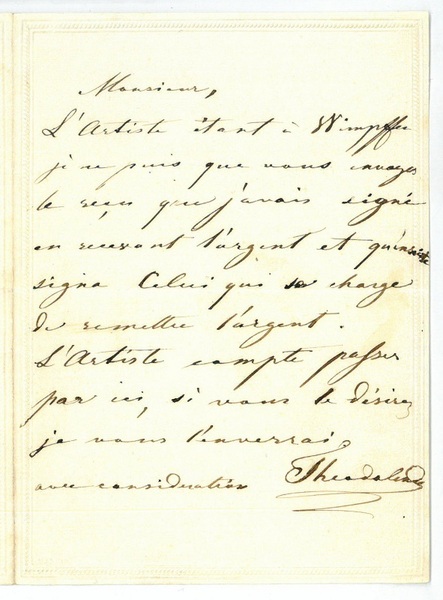 Monsieur,
L'Artiste étant à Wimpffen
je ne puis que vous envoyer
le recu que j'avais signé
en recevant l'argent et qu'ensuite
signa Celui qui se charge
de remettre l'argent.
L'Artiste compte passer
par ici, si vous le désirez
je vous l'enverrai
avec considération Theodolinde